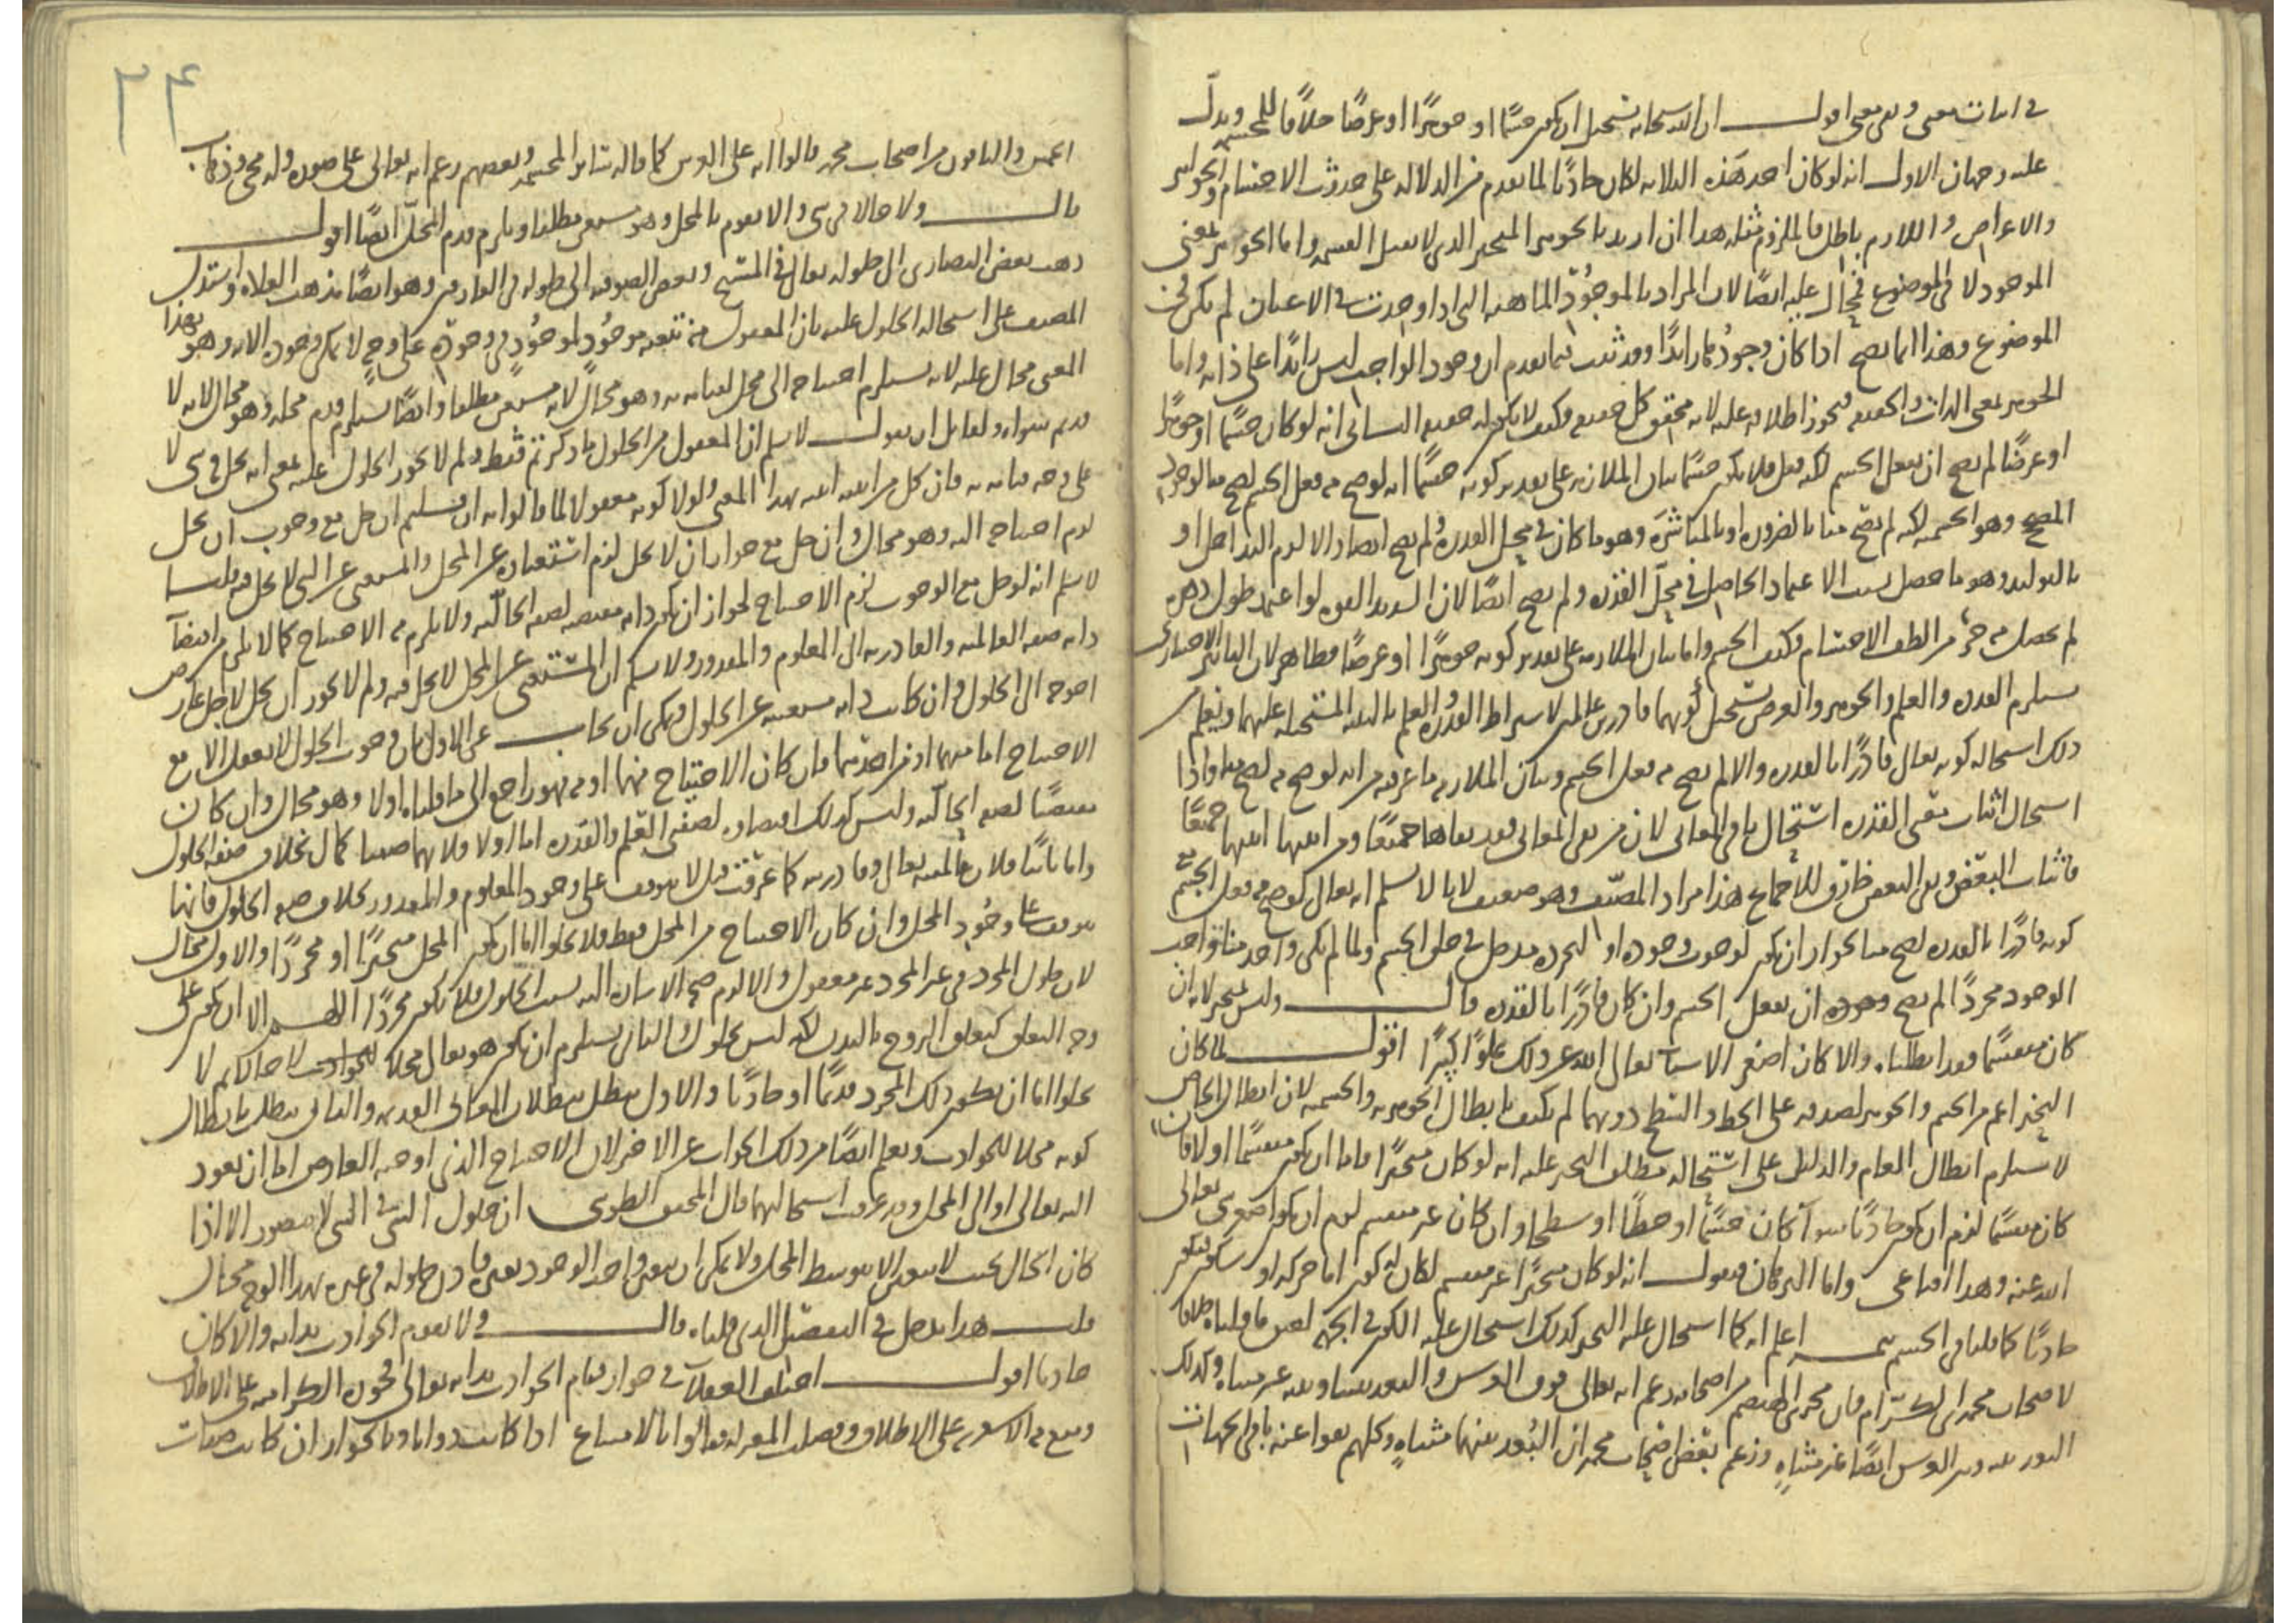 في اثبات معنى ونفي معنى اقول ان الله سبحانه يستحيل ان يكون جسمًا او جوهرًا او عرضًا خلافًا للمجسمة ويدلّ
عليه وجهان الاول انه لو كان احد هذه الثلاثة لكان حادثًا لما تقدم من الدلالة على حدوث الاجسام والجواهر
والاعراض واللازم باطل فالملزوم مثله هذا ان اريد بالجوهر المتحيز الذي لا يقبل القسمة واما الجوهر بمعنى
الموجود لا في الموضوع فمحال عليه ايضًا لان المراد بالموجود الماهية التي اذا وجدت في الاعيان لم يكن في
الموضوع وهذا انما يصح اذا كان وجوده زائدًا وقد ثبت فيما تقدم ان وجود الواجب ليس زائدًا على ذاته واما
الجوهر بمعنى الذات والحقيقة فيجوز اطلاقه عليه لانه محقق كل حقيقة فكيف لا يكون له حقيقة الثاني انه لو كان جسمًا او جوهرًا
او عرضًا لم يصح ان يفعل الجسم لكنه فعل فلا يكون جسمًا بيان الملازمة على تقدير كونه جسمًا انه لو صح منه فعل الجسم لصح منا لوجود
المصحح وهو الجسمية لكنه لم يصح منا بالضرورة او بالمباشرة وهو ما كان في محل القدرة ولم يصح ايضًا والا لزم التداخل او
بالتوليد وهو ما حصل بسبب الاعتماد الحاصل في محل القدرة ولم يصح ايضًا لان الشديد القوة لو اعتمد طول دهره
لم يحصل منه جزء من الطف الاجسام فكيف الجسم واما بيان الملازمة على تقدير كونه جوهرًا او عرضًا فظاهر لان التأثير الاختياري
يستلزم القدرة والعلم والجوهر والعرض يستحيل كونهما قادرين عالمين لاشتراط القدرة والعلم بالبنية المستحيلة عليهما ويعلم من
ذلك استحالة كونه تعالى قادرًا بالقدرة والا لم يصح منه فعل الجسم وبيان الملازمة ما عرفته من انه لو صح منه لصح منا واذا
استحال اثبات معنى القدرة استحال باقي المعاني لان من نفى المعاني فقد نفاها جميعًا ومن اثبتها اثبتها جميعًا
فاثبات البعض ونفي البعض خارق للاجماع هذا مراد المصنف وهو ضعيف لانا لا نسلم انه تعالى لو صح منه فعل الجسم مع
كونه قادرًا بالقدرة لصح منا لجواز ان يكون لوجوب وجوده او لتجرده مدخل في خلق الجسم ولما لم يكن واحد منا واجب
الوجود مجردًا لم يصح منه ان يفعل الجسم وان كان قادرًا بالقدرة قال وليس بمتحيز لانه ان
كان منقسمًا فقد ابطلناه والا كان اصغر الاشياء تعالى الله عن ذلك علوًا كبيرًا اقول لما كان
التحيز اعم من الجسم والجوهر لصدقه على الخط والسطح دونهما لم يكتف بابطال الجوهرية والجسمية لان ابطال الخاص
لا يستلزم ابطال العام والدليل على استحالة مطلق التحيز عليه انه لو كان متحيزًا فاما ان يكون منقسمًا او لا فان
كان منقسمًا لزم ان يكون حادثًا سواء كان جسمًا او خطًا او سطحًا وان كان غير منقسم لزم ان يكون اصغر شيء تعالى
الله عنه وهذا اقناعي واما البرهان فنقول انه لو كان متحيزًا غير منقسم لكان له كون اما حركة او سكون فيكون
حادثًا كما قلنا في الجسم اعلم انه كما استحال عليه التحيز كذلك استحال عليه الكون في الجهة لعين ما قلناه خلافا
لاصحاب محمد بن الكرّام فان محمد بن الهيصم من اصحابه زعم انه تعالى فوق العرش والبعد بيننا وبينه غير متناه وكذلك
البعد بينه وبين العرش ايضًا غير متناهٍ وزعم بعض اصحاب محمد ان البُعد بينهما متناهٍ وكلهم نفوا عنه باقي الجهات
٢٤
الخمس والباقون من اصحاب محمد قالوا انه على العرش كما قاله سائر المجسمة وبعضهم زعم انه تعالى على صورة وله مجيء وذهاب
قال ولا حالا في شيء والا لتقوم بالمحل وهو مستغن مطلقا ويلزم قدم المحل ايضًا اقول
ذهب بعض النصارى الى حلوله تعالى في المسيح وبعض الصوفية الى حلوله في العارفين وهو ايضًا مذهب الغلاة واستدل
المصنف على استحالة الحلول عليه بان المعقول منه تبعية موجود لموجود في وجوده على وجه لا يمكن وجوده الا به وهو بهذا
المعنى محال عليه لانه يستلزم احتياجه الى محل لقيامه به وهو محال لانه مستغن مطلقا وايضًا يستلزم قدم محله وهو محال لانه لا
قديم سواه ولقائل ان يقول لا نسلم ان المعقول من الحلول ما ذكرتم فقط ولم لا يجوز الحلول عليه بمعنى انه يحل في شيء لا
على وجه قيامه به فان كل من اثبته اثبته بهذا المعنى ولولا كونه معقولا لما قالوا به ان قيل ان حل مع وجوب ان يحل
لزم احتياجه اليه وهو محال وان حل مع جواز ان لا يحل لزم استغناؤه عن المحل والمستغني عن الشيء لا يحل فيه قلنا
لا نسلم انه لو حل مع الوجوب لزم الاحتياج لجواز ان يكون ذاته مقتضية لصفة الحالّية ولا يلزم منه الاحتياج كما لا يلزم من اقتضاء
ذاته صفة العالمية والقادرية الى المعلوم والمقدور ولا نسلم ان المستغني عن المحل لا يحل فيه ولم لا يجوز ان يحل لاجل غرض
احوجه الى الحلول وان كانت ذاته مستغنية عن الحلول ويمكن ان يجاب عن الاول بان وجوب الحلول لا يعقل الا مع
الاحتياج اما منهما او من احدهما فان كان الاحتياج منهما او منه فهو راجع الى ما قلناه اولا وهو محال وان كان
مقتضيًا لصفة الحالّية وليس كذلك اقتضاؤه لصفتي العلم والقدرة اما اولا فلانهما صفتا كمال بخلاف صفة الحلول
واما ثانيًا فلان عالميته تعالى وقادريته كما عرفت قبل لا يتوقف على وجود المعلوم والمقدور بخلاف صفة الحلول فانها
تتوقف على وجود المحل وان كان الاحتياج من المحل فقط فلا يخلو اما ان يكون المحل متحيزًا او مجردًا والاول محال
لان حلول المجرد في غير المجرد غير معقول والا لزم صحة الاشارة اليه بسبب الحلول فلا يكون مجردًا اللهم الا ان يكون على
وجه التعلق كتعلق الروح بالبدن لكنه ليس بحلول والثاني يستلزم ان يكون هو تعالى محلا للحوادث لا حالا ثم لا
يخلو اما ان يكون ذلك المجرد قديمًا او حادثًا والاول يبطل ببطلان المعاني القديمة والثاني يبطل بابطال
كونه محلا للحوادث ويعلم ايضًا من ذلك الجواب عن الاخر لان الاحتياج الذي اوجبه العارض اما ان يعود
اليه تعالى او الى المحل وقد عرفت استحالتهما قال المحقق الطوسي ان حلول الشيء في الشيء لا يتصور الا اذا
كان الحال بحيث لا يتعين الا بتوسط المحل ولا يمكن ان يتعين واجب الوجود بغيره فاذن حلوله في غيره بهذا الوجه محال
قلت هذا يدخل في التفصيل الذي قلناه قال ولا تقوم الحوادث بذاته والا كان
حادثا اقول اختلف العقلاء في جواز قيام الحوادث بذاته تعالى فجوزه الكرامية على الاطلاق
ومنع منه الاشعرية على الاطلاق وفصلت المعتزلة فقالوا بالامتناع اذا كانت ذواتا وبالجواز ان كانت صفات